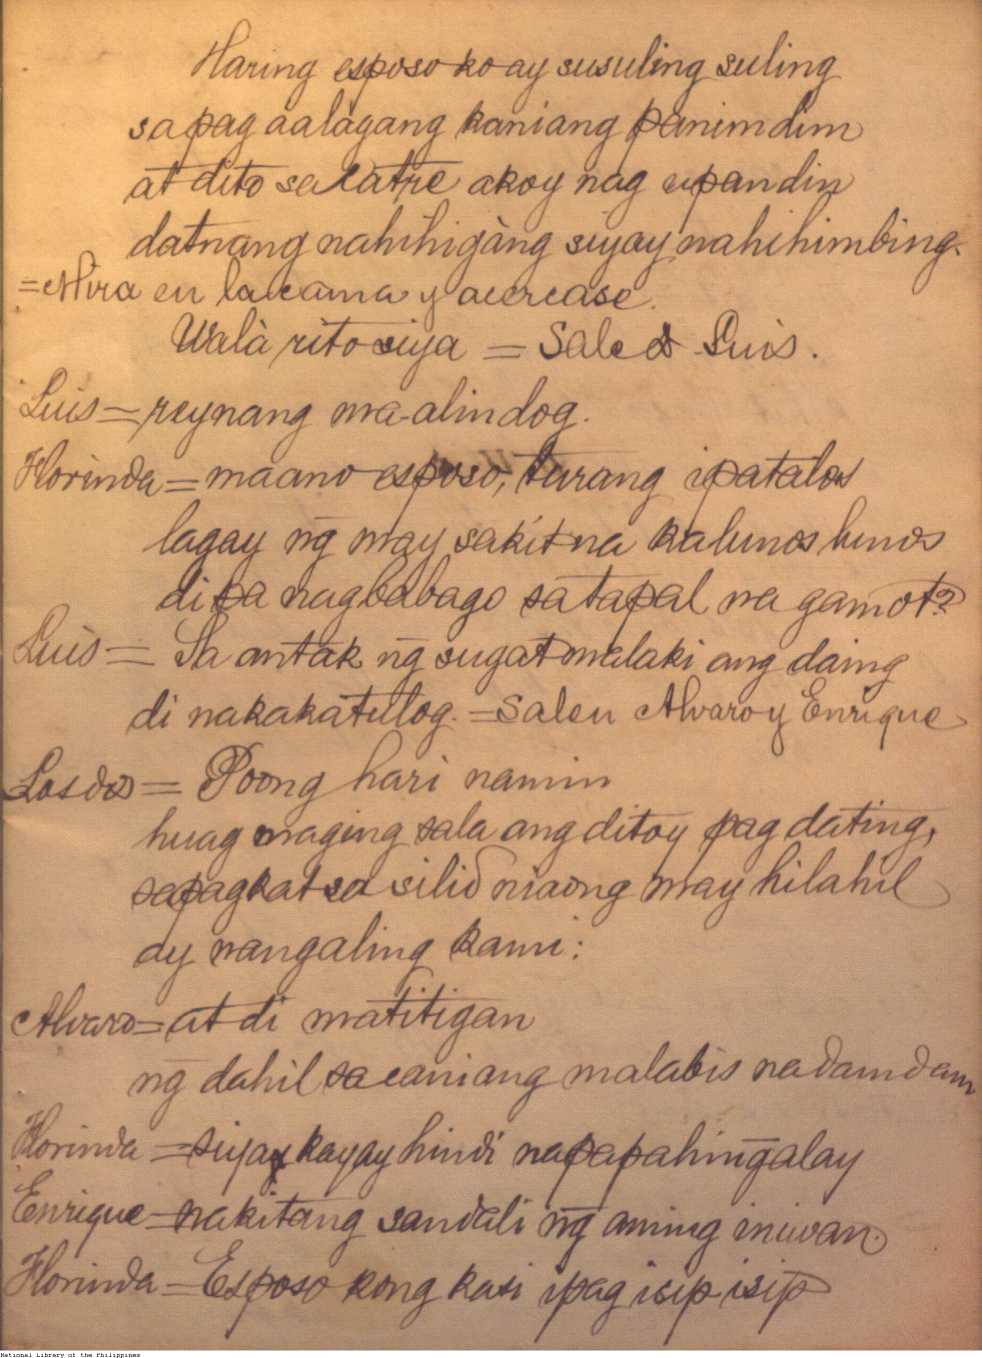 Haring esposo ko ay susuling suling
sa pag aalagang kaniang panimdim
at dito sa catre akoy nag upandin
datnang nahihigàng siyay nahihimbing.
=Mira en la cama y acercase.
Walà rito siya = Sale D Luis.
Luis = reynang ma-alindog.
Florinda = maano esposo, turang ipatalos
lagay ng̃ may sakit na kalunos lunos
di pa nagbabago sa tapal na gamot?
Luis = Sa antak ng̃ sugat malaki ang daing
di nakakatulog. = Salen Alvaro y Enrique
Los dos = Poong hari namin
huag maging sala ang ditoy pag dating,
sapagkat sa silid niaong may hilahil
ay nangaling kami:
Alvaro = at di matitigan
ng̃ dahil sa caniang malabis na damdam
Florinda = siyay kayay hindi napapahing̃alay
Enrique = nakitang sandali ng̃ aming iniwan.
Florinda = Esposo kong kasi ipag isip isip
National Library of the Philippines